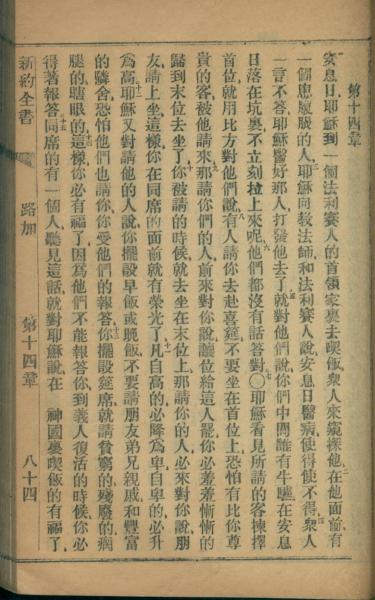 第十四章
安息日、耶穌到一個法利賽人的首領家裏去喫飯、衆人來窺探他、在他面前有
一個患臌脹的人、耶穌向敎法師和法利賽人說、安息日醫病使得使不得、衆人
一言不答、耶穌醫好那人、打發他去了、就對他們說、你們中間誰有牛驢在安息
日落在坑裏、不立刻拉上來呢、他們都沒有話答對〇耶穌看見所請的客揀擇
首位、就用比方對他們說、有人請你去赴喜筵、不要坐在首位上、恐怕有比你尊
貴的客被他請來、那請你們的人、前來對你說、讓位給這人罷、你必羞羞慚慚的
歸到末位去坐了、你被請的時候、就去坐在末位上、那請你的人、必來對你說、朋
友請上坐、這樣、你在同席的面前、就有榮光了、凡自高的必降爲卑、自卑的必升
爲高、耶穌又對請他的人說、你擺設早飯或晚飯、不要請朋友弟兄親戚和豐富
的隣舍、恐怕他們也請你、你受他們的報答、你擺設筵席、就請貧窮的、殘廢的、瘸
腿的、瞎眼的、這樣、你必有福了、因爲他們不能報答你、到義人復活的時候、你必
得著報答、同席的有一個人聽見這話、就對耶穌說、在 神國裏喫飯的有福了、
新約全書 路加 第十四章 八十四